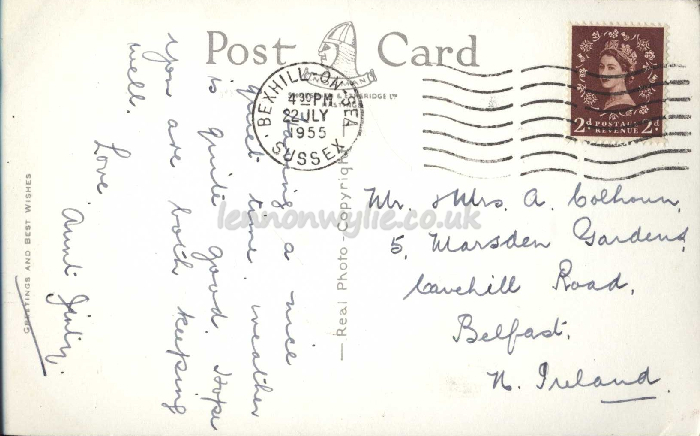 Post Card
NORMAN
SHOESMITH & ETHERIDGE LTD
HASTINGS
BEXHILL-ON-SEA
4 30 PM
22 JLY
1955
SUSSEX
2d POSTAGE 2d
REVENUE
Having a nice
quiet time. weather
is quite good. Hope
you are both keeping
well.
Love
Aunt
GREETINGS AND BEST WISHES
Real Photo-Copyright
Mr. & Mrs. A. Colhoun,
5, Marsden Gardens,
Cavehill Road,
Belfast.
N. Ireland.
lennonwylie.co.uk